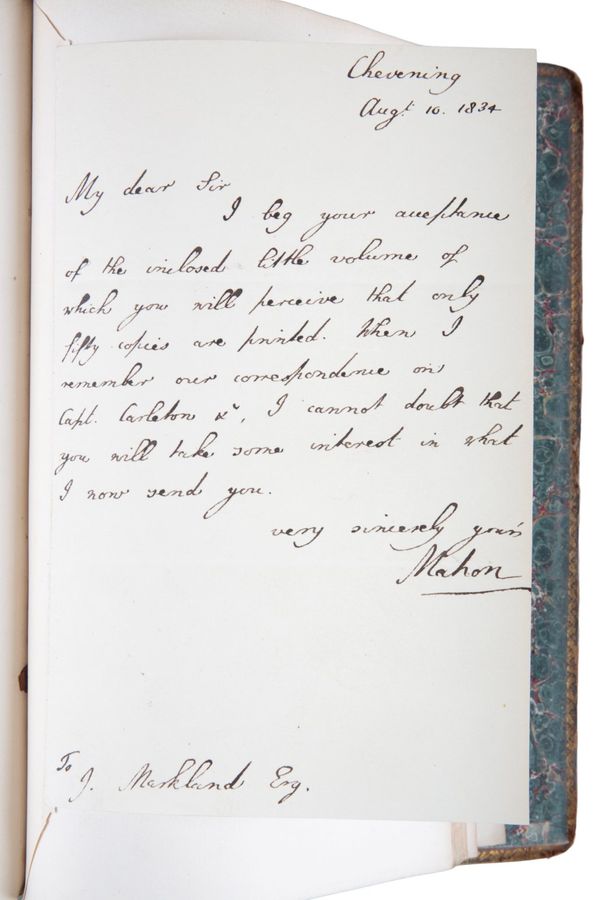 Chevening
Augt. 10. 1834
My dear Sir
I beg your acceptance
of the inclosed little volume of
which you will perceive that only
fifty copies are printed. When I
remember our correspondence on
Capt. Carleton &c, I cannot doubt that
you will take some interest in what
I now send you.
very sincerely yours
Mahon
To
J. Markland Esq.